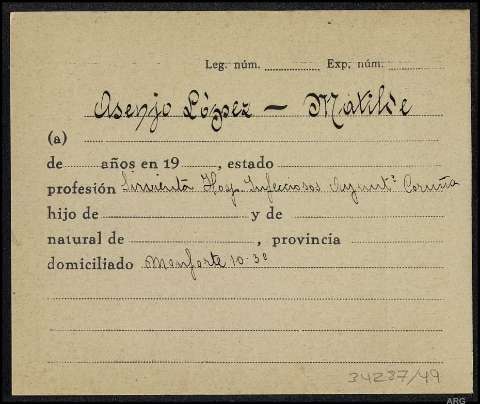 Leg. núm. Exp. núm.
Asenjo López - Matilde
(a)
de años en 19 , estado
profesión Sirvienta Hosp. Infecciosos Ayuntº Coruña
hijo de y de
natural de , provincia
domiciliado Monforte 10-3º
34237/49
ARG